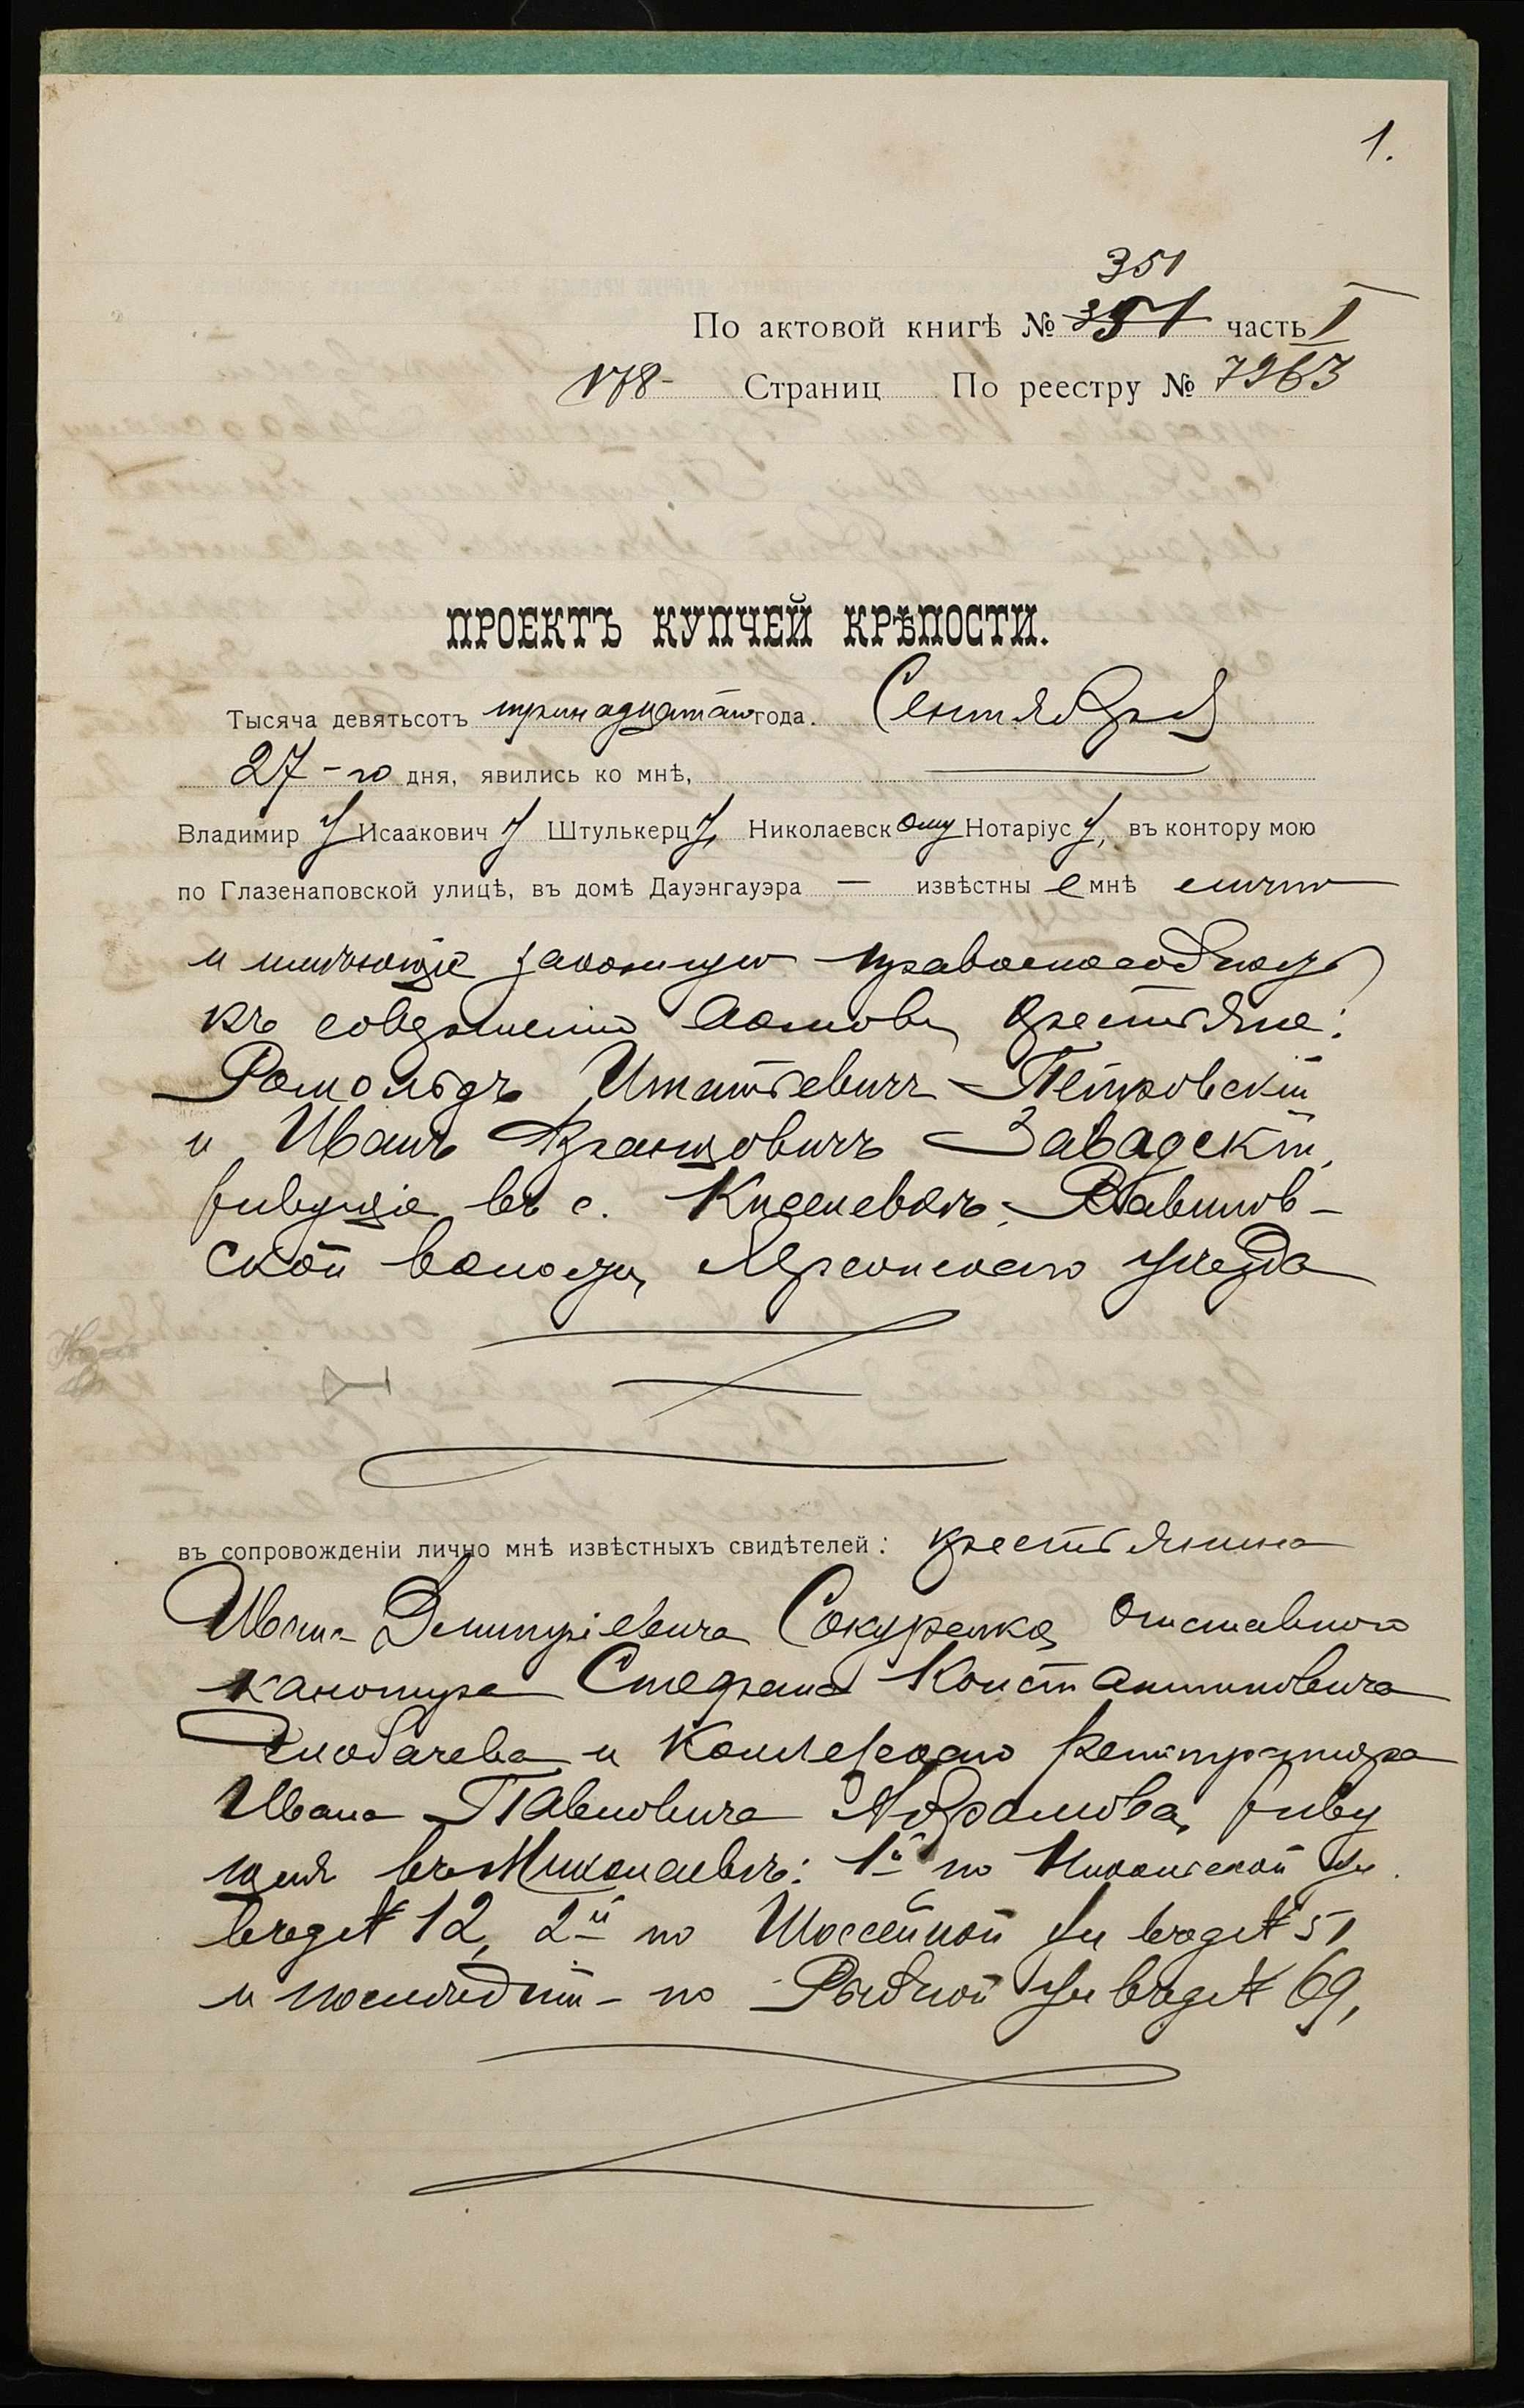 1.
351
По актовой книгѣ № 351 часть I
178 - Страниц По реестру № 7263
ПРОЕКТЪ КУПЧЕЙ КРѢПОСТИ.
Тысяча девятьсотъ тринадцатаго года. Сентября
27-го дня, явились ко мнѣ,
Владимир у Исаакович у Штулькерц у, Николаевск ому Нотаріус у, въ контору мою
по Глазенаповской улицѣ, въ домѣ Дауэнгауэра — извѣстны е мнѣ лично
и имѣющіе законную правоспособность
къ совершенію актовъ, крестьяне:
Ромольдъ Игнатьевичъ Петровскій
и Иванъ Францовичъ Завадскій,
живущіе въ с. Киселевкѣ, Вавилов-
ской волости, Херсонскаго уѣзда
въ сопровожденіи лично мнѣ извѣстныхъ свидѣтелей: крестьянина
Ивана Дмитріевича Сокуренка, отставного
канонира Стефана Константиновича
и Коллежскаго Регистратора
Ивана Павловича Абрамова, живу
щихъ въ Николаевѣ: 1й по Никольской ул.
въ д № 12, 2й по Шоссейной ул въ д № 51
и послѣдній - по Рыбной ул въ д № 69,